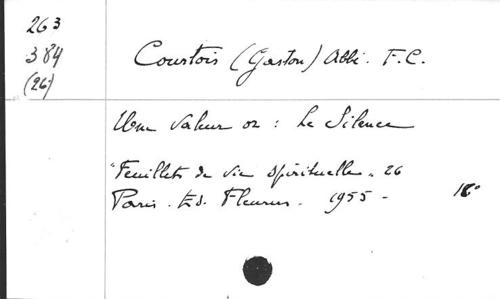 263
384
(26)
Courtois (Gaston) Abbé. F.C.
Une valeur or : Le Silence
"Feuillets de vie spirituelle" 26
Paris. Ed. Fleurus. 1955 -
16°